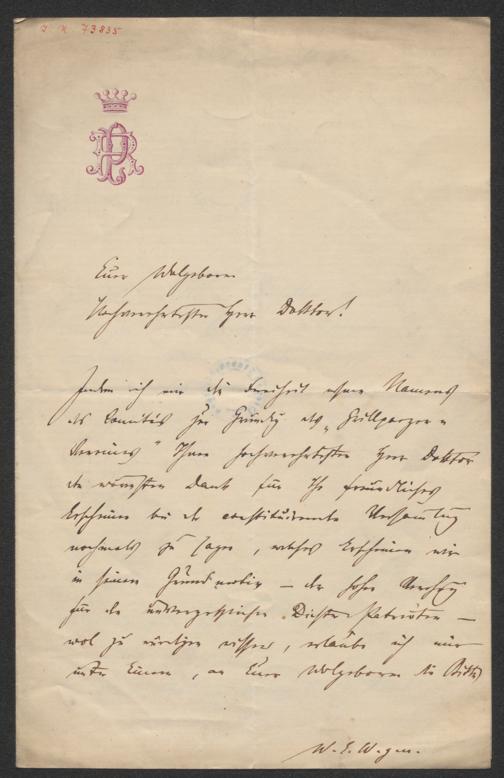 I. N. 73835
PR
Euer Wolgeboren
Hochverehrtester Herr Doktor!
Indem ich mir die Freiheit nehme Namens
des Comités zur Gründg des „Grillparzer-
Vereines" Ihnen hochverehrtester Herr Doktor
den wärmsten Dank für Ihr freundliches
Erscheinen bei der constituirenden Versamlung
nochmals zu sagen, welches Erscheinen wir
in seinem Grundmotiv – der hohen Verehrg
für den unvergesslichen Dichter-Patrioten –
wol zu würdigen wissen, erlaube ich mir
unter Einem, an Euer Wolgeboren die Bitte